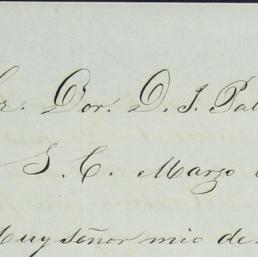 Sr. Dor. D. J. Pa
S. C. Marzo
Muy señor mio de